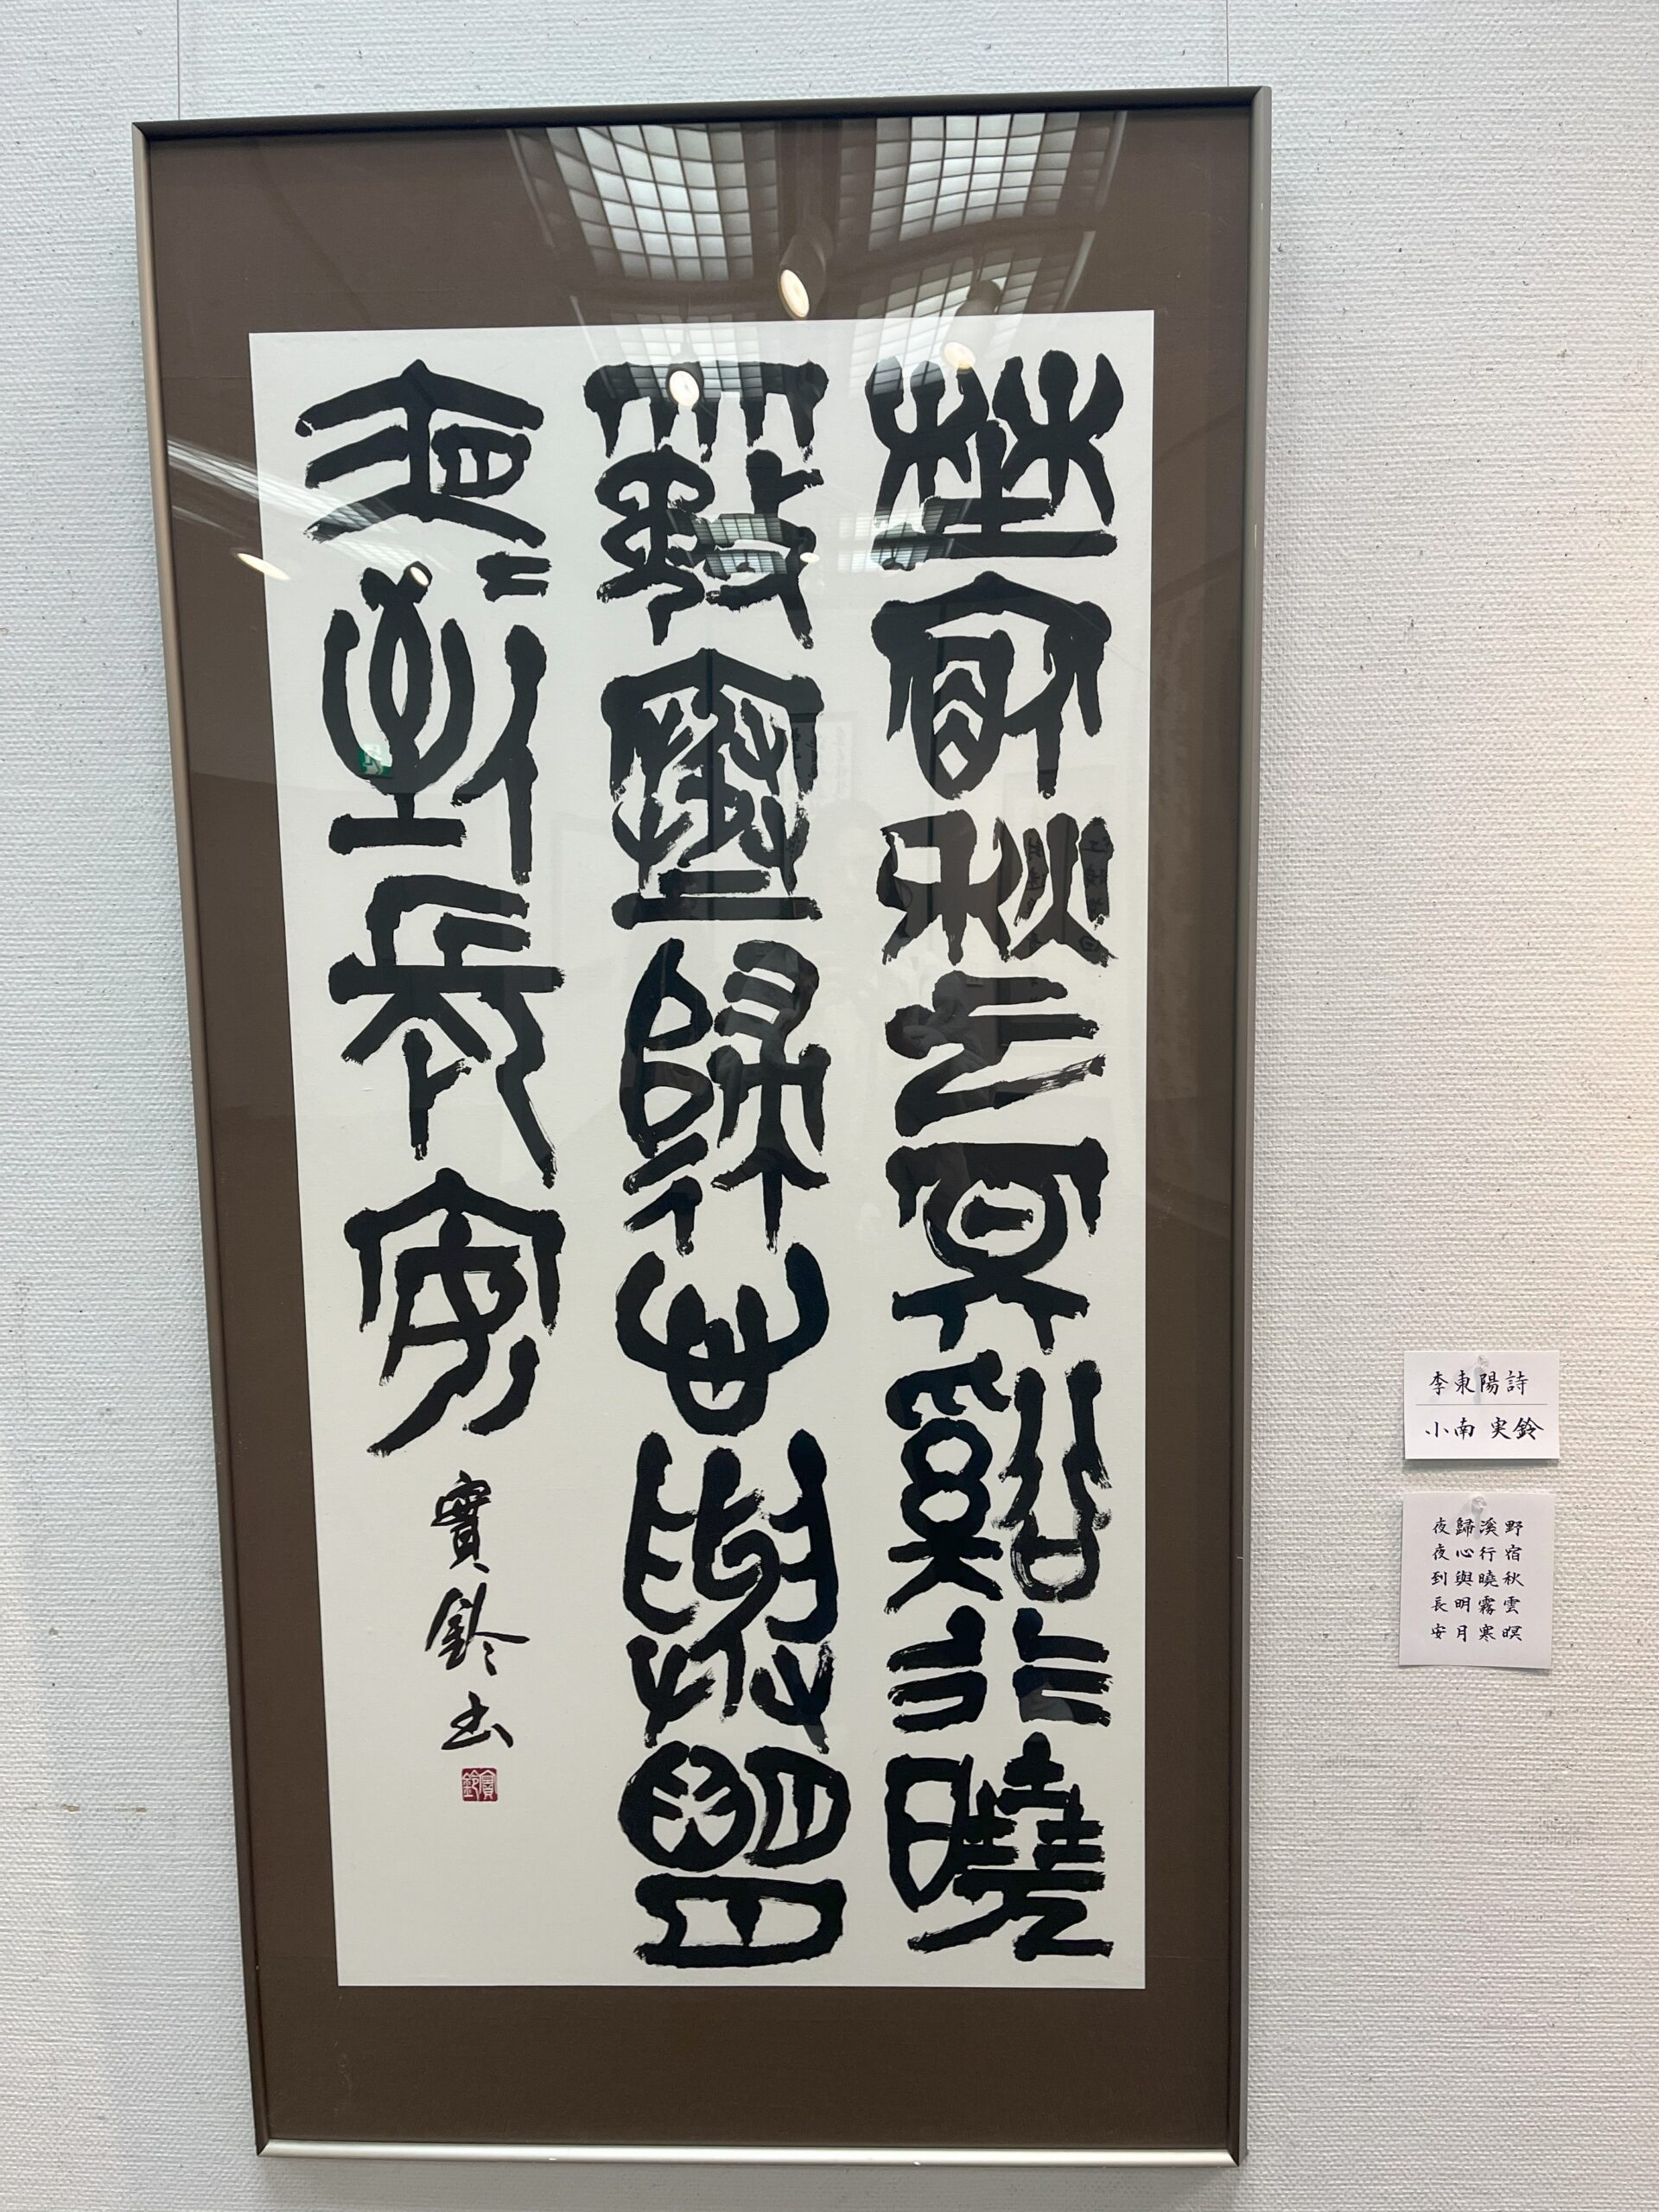 埜宿秋云冥谿行曉
霧寒歸心與朙月
夜〻到長安
實鈴书
實鈴
李東陽詩
小南 実鈴
野宿秋雲暝
溪行曉霧寒
歸心與明月
夜夜到長安